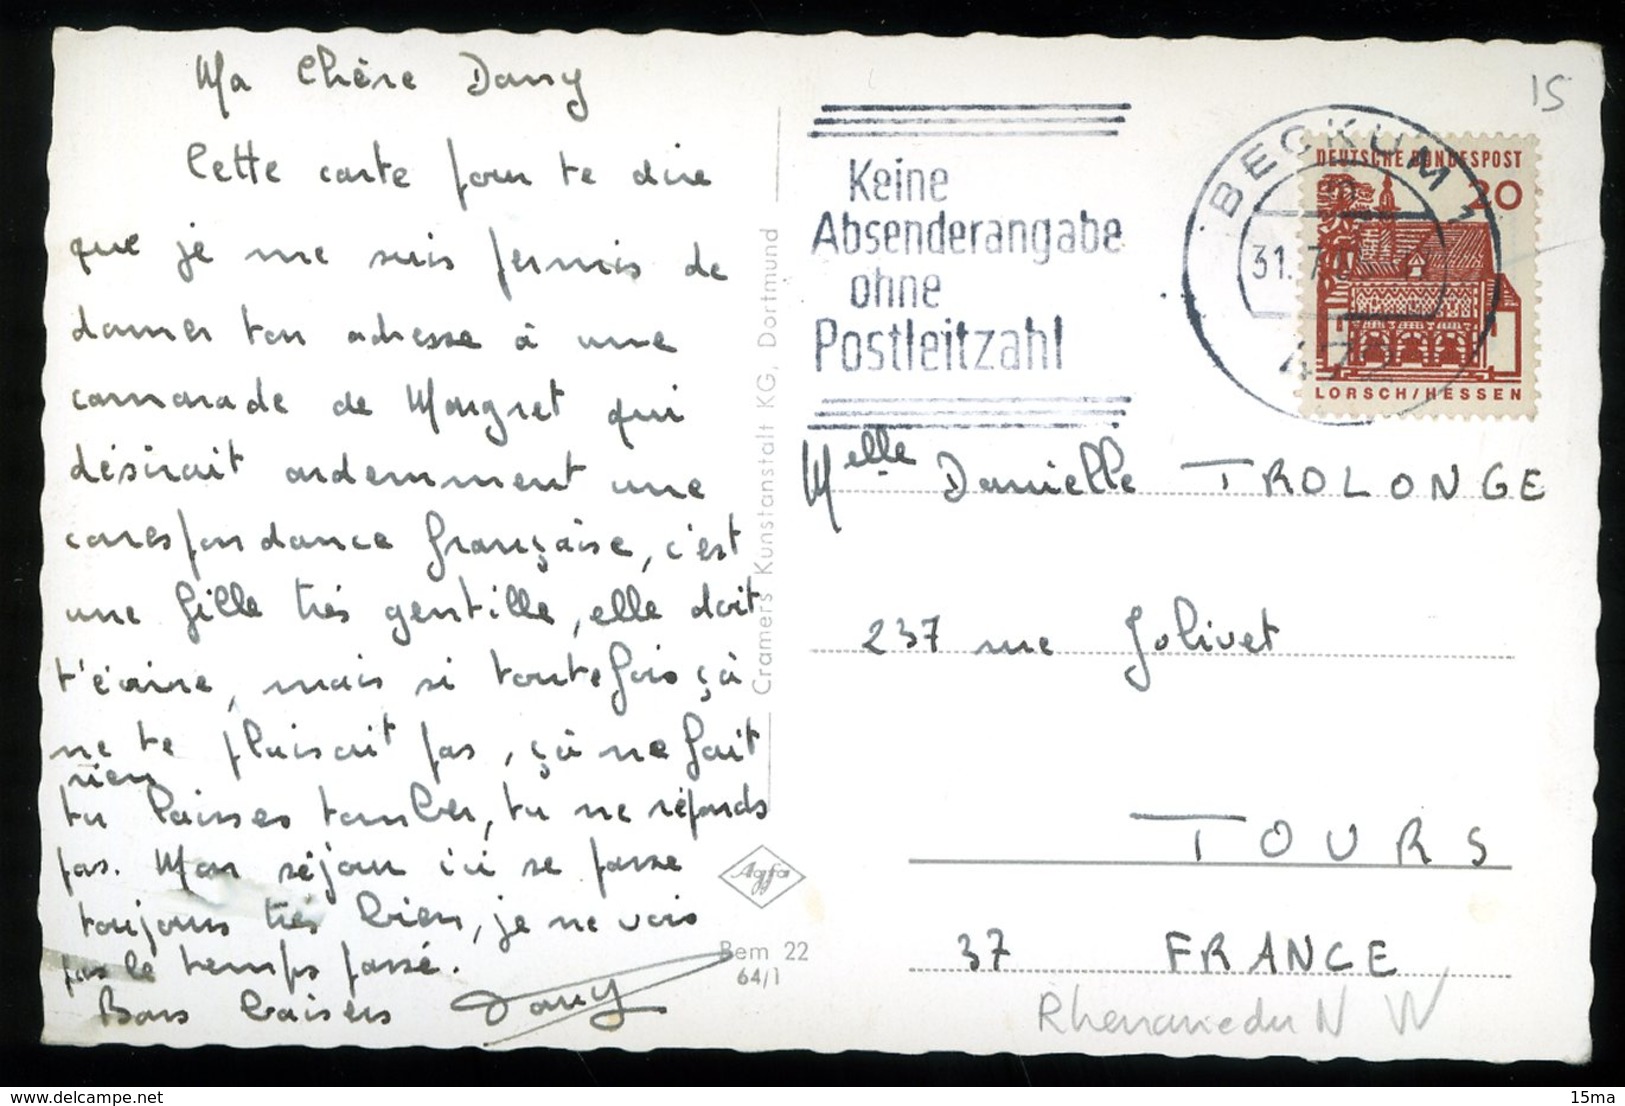 Ma Chère Dany
Cette carte pour te dire
que je me suis permis de
donner ton adresse à une
camarade de Margret qui
désirait ardemment une
correspondance française, c'est
une fille très gentille, elle doit
t'écrire, mais si toutefois çà
ne te plaisait pas, çà ne fait
rien
tu laisses tomber, tu ne réponds
pas. Mon séjour ici se passe
toujours très bien, je ne vois
pas le temps passé.
Bons baisers Dany
Cramers Kunstanstalt KG, Dortmund
Agfa
Bem 22
64/1
Keine
Absenderangabe
ohne
Postleitzahl
BECKUM 1
31.7.
472
15
DEUTSCHE BUNDESPOST
20
LORSCH/HESSEN
Melle Danielle TROLONGE
237 rue Jolivet
TOURS
37 FRANCE
Rhenanie du N W
delcampe.net
15ma